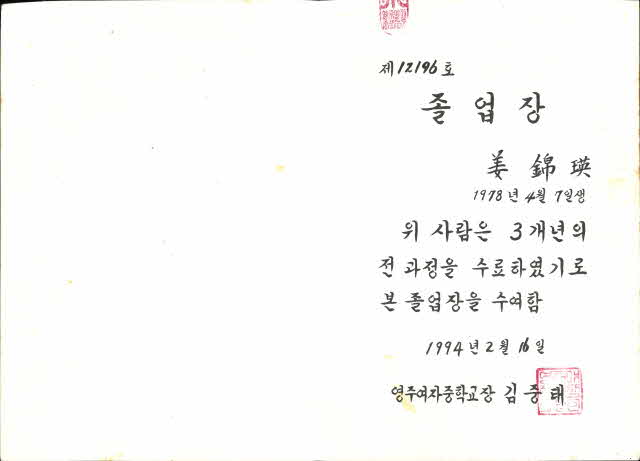 제12196호
졸업장
姜錦瑛
1978년 4월 7일생
위 사람은 3개년의
전 과정을 수료하였기로
본 졸업장을 수여함
1994년 2월 16일
영주여자중학교장 김중태